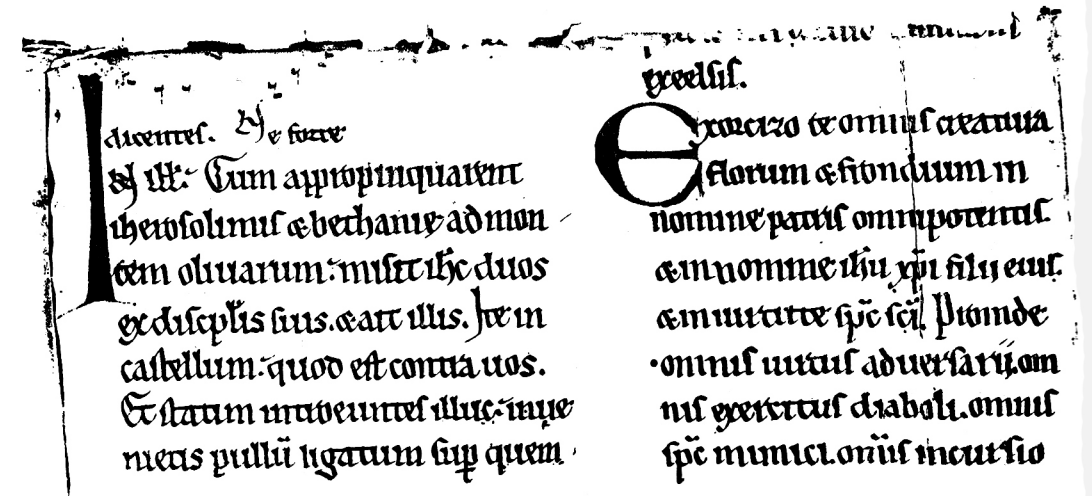 dicentes. Ne forte
In ill̅. Cum appropinquarent
iherosolimis & bethanie ad mon
tem oliuarum. misit ih̅c duos
ex discipl̅is suis. & ait illis. Ite in
castellum. quod est contra uos.
Et statim introeuntes illuc. inue
nietis pullu̅ ligatum sup̲ quem
excelsis.
Exorcizo te omnis creatura
florum & frondium in
nomine patris omnipotentis.
& in nomine ih̅u xp̅i filii eius.
& in uirtute sp̅c sc̅i. Proinde
·omnis uirtus aduersarij. om
nis exercitus diaboli. omnis
sp̅c inimici. om̅is incursio